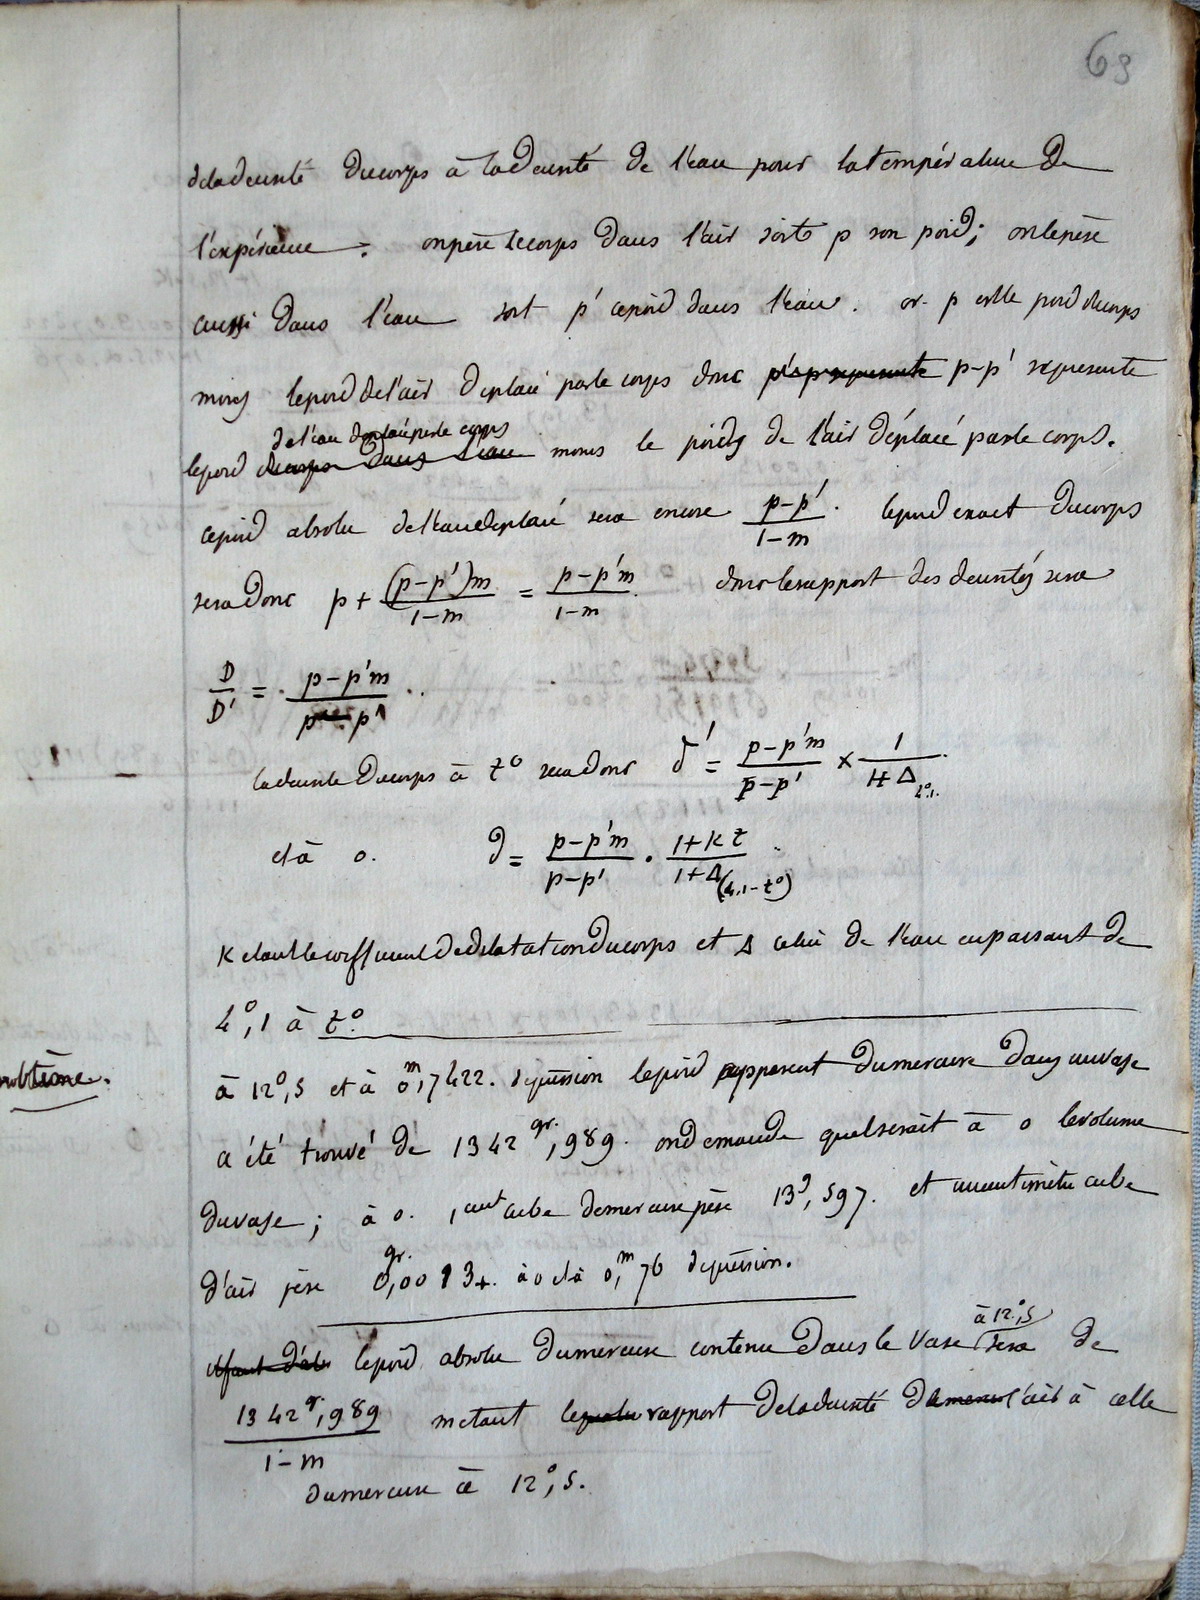 69
de la densité du corps à la densité de l'eau pour la température de
l'expérience. on pèse le corps dans l'air soit p son poid; on le pèse
aussi dans l'eau soit p' ce poid dans l'eau. or p est le poid du corps
moins le poid de l'air déplacé par le corps donc p-p' represente
de l'eau deplacée par le corps
le poid moins le poids de l'air déplacé par le corps.
ce poid absolu de l'eau deplacé sera encore (p-p')/(1-m). le poid exact du corps
sera donc p + (p-p')m/(1-m) = (p-p'm)/(1-m). donc le rapport des densités sera
D/D' = (p-p'm)/(p-p')
la densité du corps à t° sera donc δ' = (p-p'm)/(p-p') × 1/(1+Δ 4°,1.
et à 0. δ = (p-p'm)/(p-p') . (1+Kt)/(1+Δ(4,1-t°))
K étant le coefficient de dilatation du corps et Δ celui de l'eau en passant de
4°,1 à t°.
problème.
à 12°,5 et à 0m,7422. de pression le poid apparent du mercure dans un vase
a été trouvé de 1342gr.,989. on demande quel serait à 0 le volume
du vase; à 0. 1 cent cube de mercure pèse 13g,597. et un centimètre cube
d'air pèse 0gr.,0013+. à 0 et à 0,m76 de pression.
à 12°,5
le poid absolu du mercure contenu dans le vase sera de
1342gr.,989/(1-m) m étant le rapport de la densité de l'air à celle
du mercure à 12°,5.